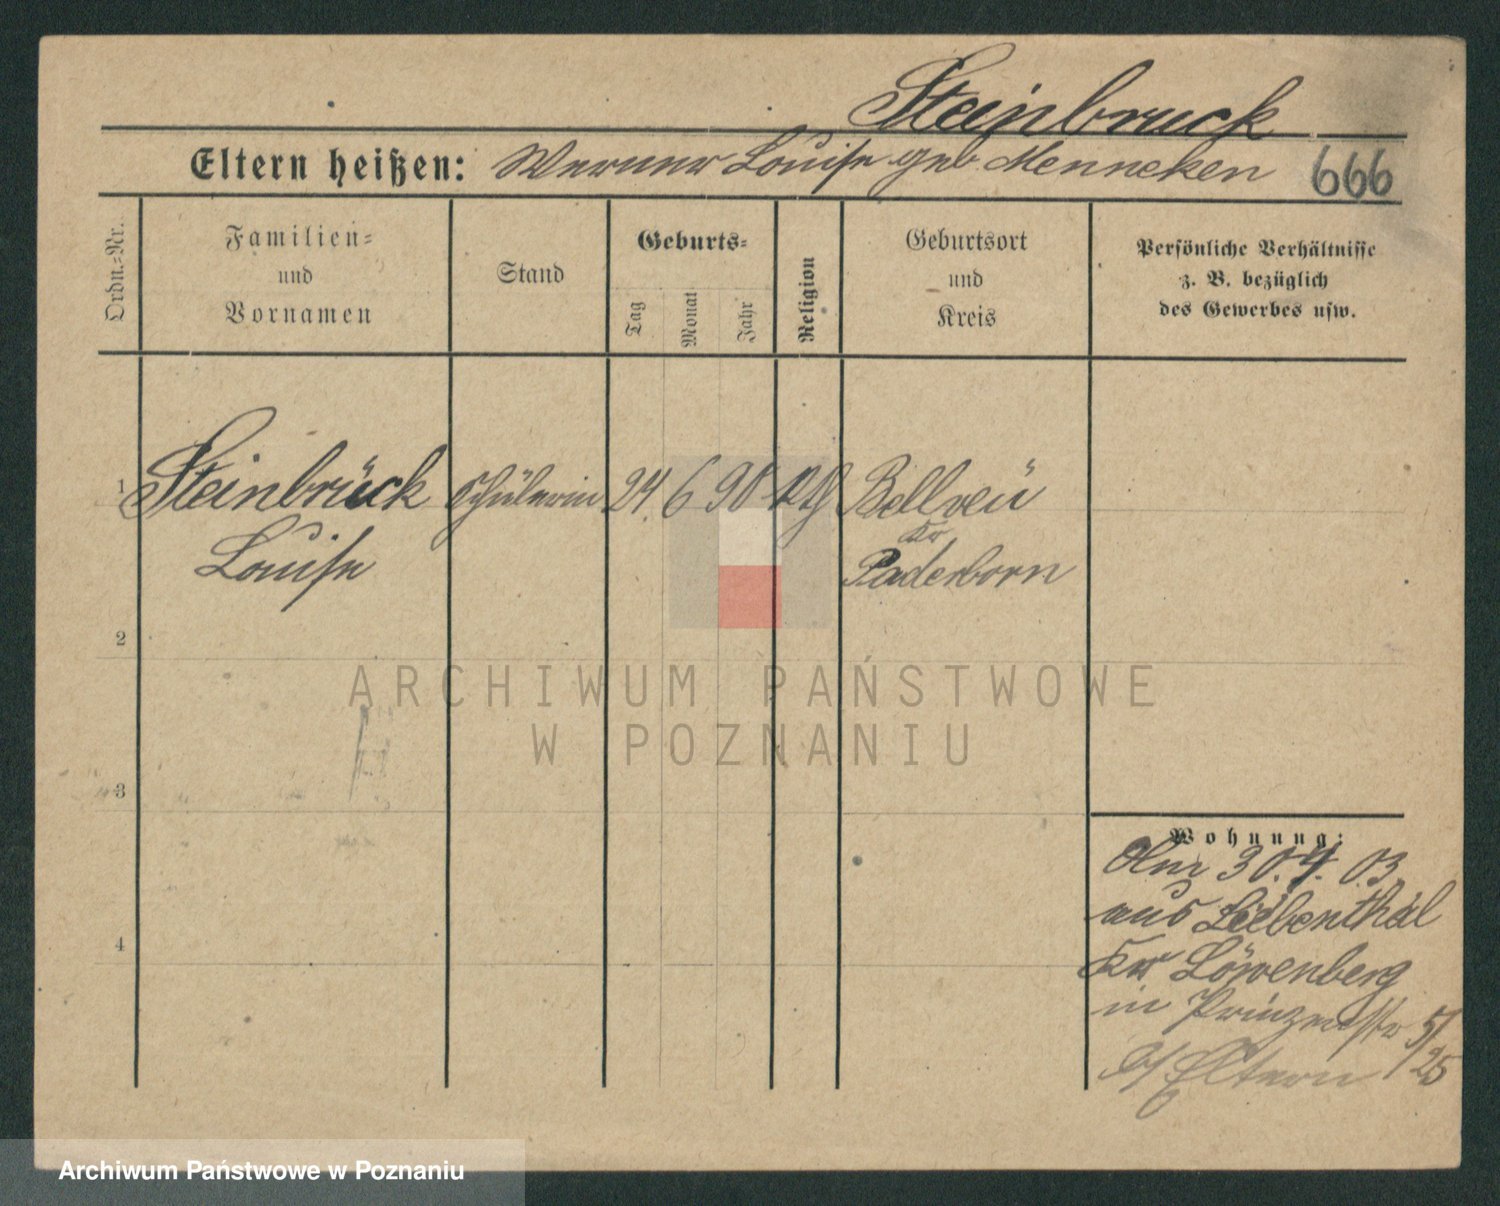 Steinbruck
Eltern heißen: Werner Louise geb Menneken 666
Ordn.=Nr.
Familien=
und
Vornamen
Stand
Geburts=
Tag
Monat
Jahr
Religion
Geburtsort
und
Kreis
Persönliche Verhältnisse
z. B. bezüglich
des Gewerbes usw.
1 Steinbrück Schülerin 24 6 90 Bellveü
Kr
Louise Paderborn
2
ARCHIWUM PAŃSTWOWE
W POZNANIU
3
Wohnung:
30.4.03
aus Liebenthal
Kr Löwenberg
in Prinzenstr 51/25
b/Eltern
4
Archiwum Państwowe w Poznaniu